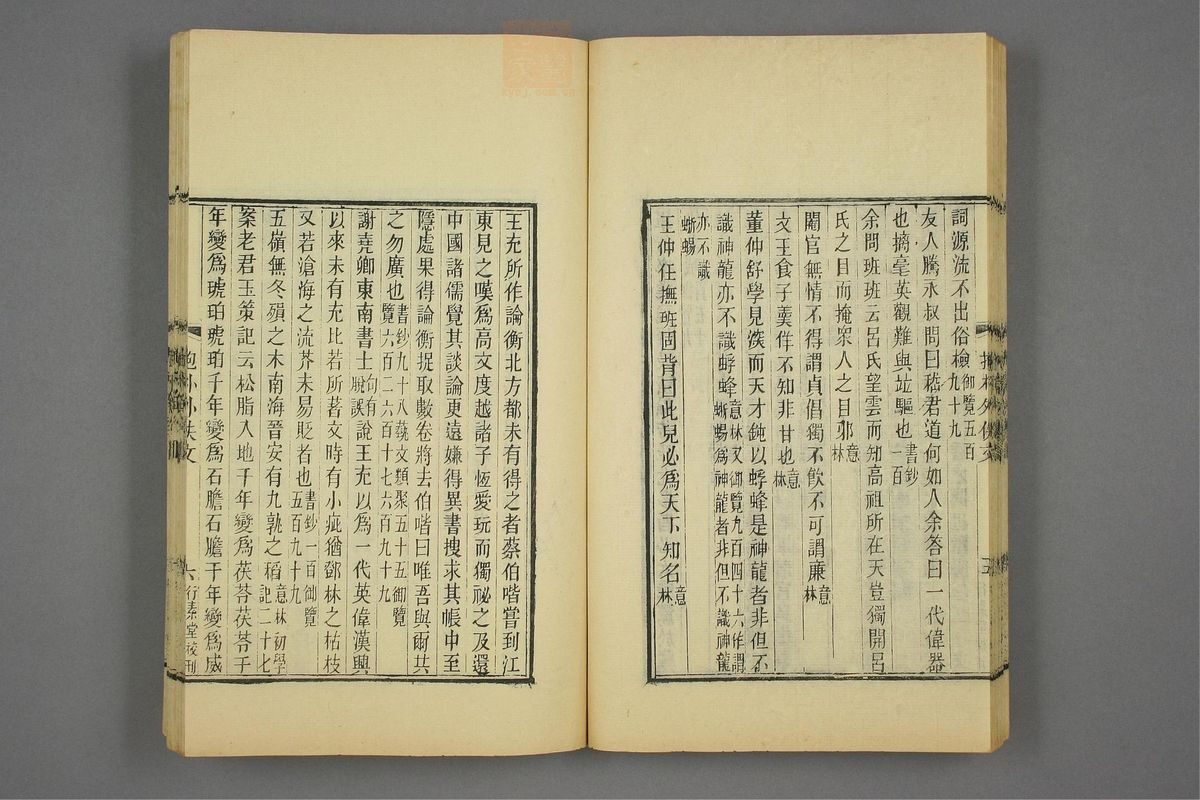 詞源流不出俗檢御覽五百九十九
友人騰永叔問曰嵇君道何如人余答曰一代偉器
也摛毫英觀難與竝驅也書鈔一百
余問班班云呂氏望雲而知高祖所在天豈獨開呂
氏之目而掩衆人之目邪意林
閹官無情不得謂貞倡獨不飲不可謂廉意林
文王食子羹佯不知非甘也意林
董仲舒學見淡而天才鈍以蜉蜂是神龍者非但不
識神龍亦不識蜉蜂意林又御覽九百四十六作謂蜥蜴爲神龍者非但不識神龍
亦不識蜥蜴
王仲任撫班固背曰此兒必爲天下知名意林
王充所作論衡北方都未有得之者蔡伯喈嘗到江
東見之嘆爲高文度越諸子恆愛玩而獨祕之及還
中國諸儒覺其談論更遠嫌得異書搜求其帳中至
隱處果得論衡捉取數卷將去伯喈曰唯吾與爾共
之勿廣也書鈔九十八蓺文類聚五十五御覽六百二六百十七六百九十九
謝堯卿東南書士句有脫誤說王充以爲一代英偉漢興
以來未有充比若所著文時有小疵猶鄧林之枯枝
又若滄海之流芥未易貶者也書鈔一百御覽五百九十九
五嶺無冬殞之木南海晉安有九孰之稻意林初學記二十七
案老君玉策記云松脂入地千年變爲茯苓茯苓千
年變爲琥珀琥珀千年變爲石膽石膽千年變爲威
六
行素堂校刊